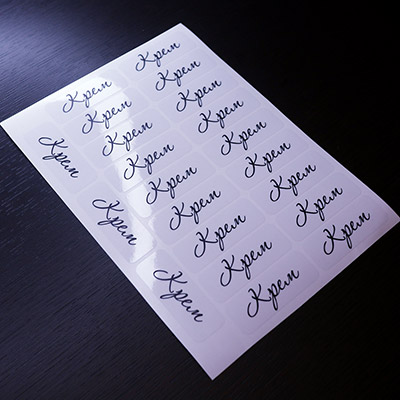 Крем
Крем
Крем
Крем
Крем
Крем
Крем
Крем
Крем
Крем
Крем
Крем
Крем
Крем
Крем
Крем
Крем
Крем
Крем
Крем
Крем